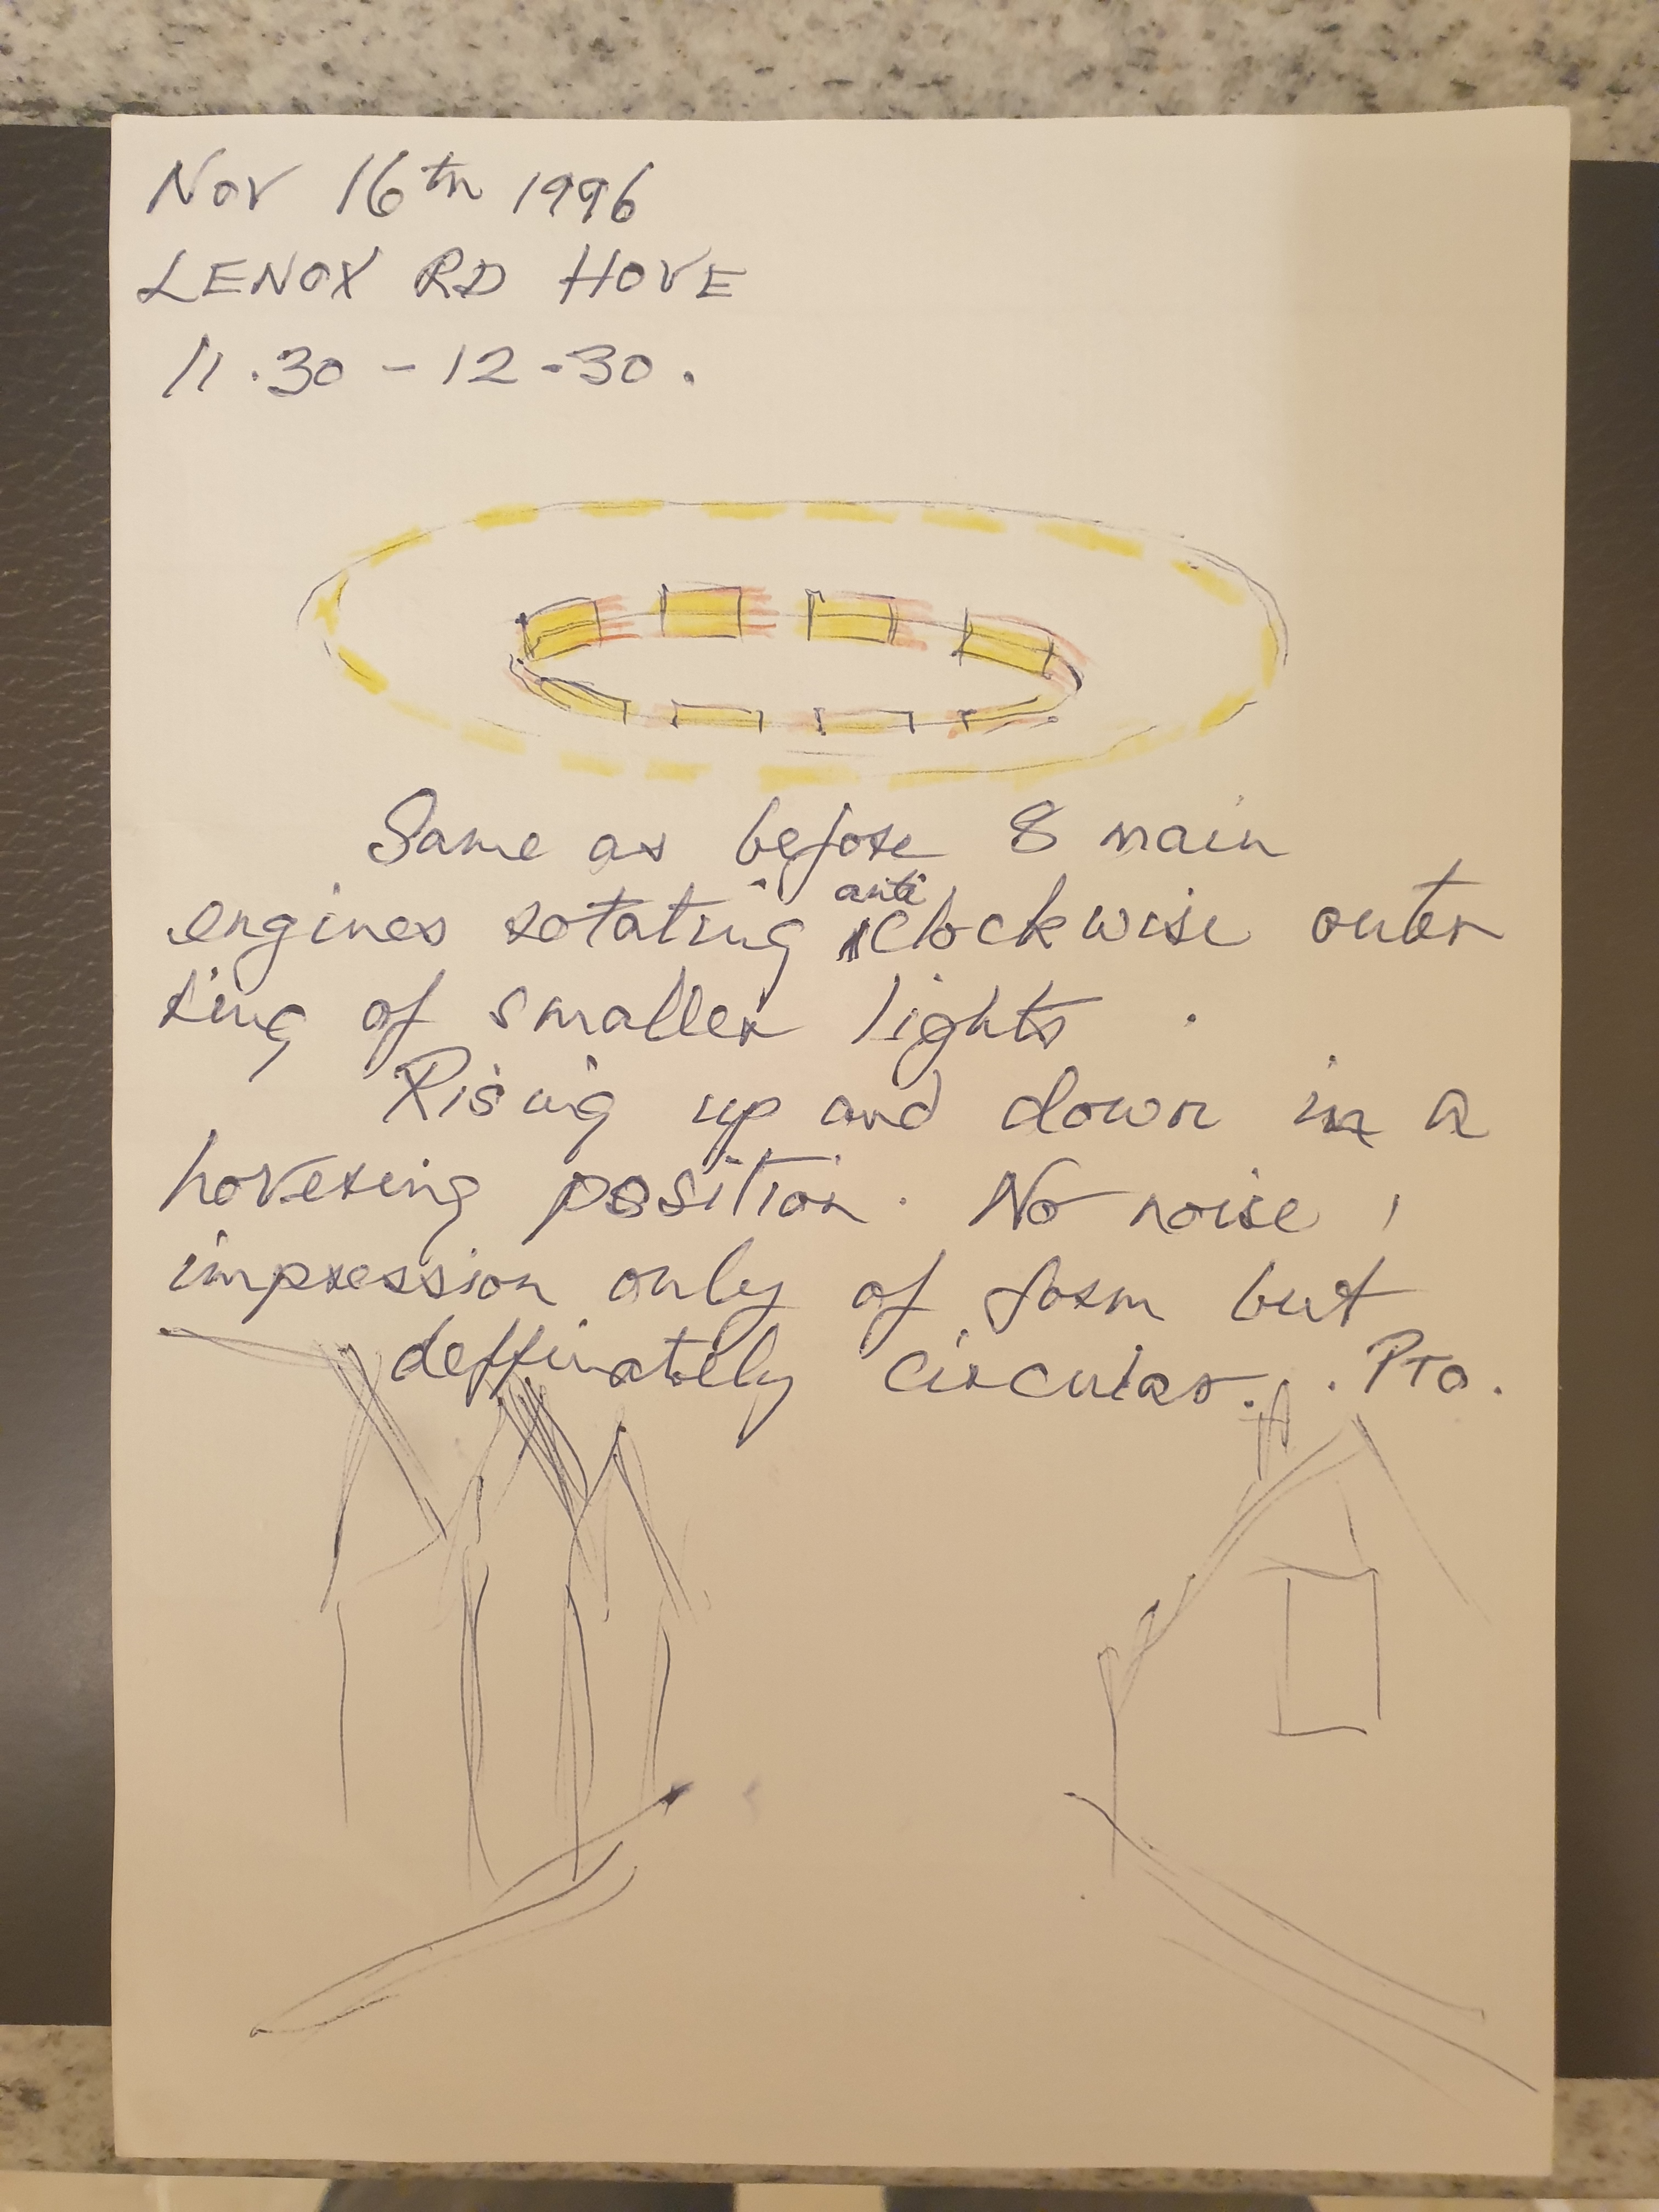 Nov 16th 1996
LENOX RD HOVE
11.30 - 12-30.
Same as before 8 main
engines rotating anti clockwise outer
ring of smaller lights.
Rising up and down in a
hovering position. No noise,
impression only of form but
deffinately circular. . PTO.